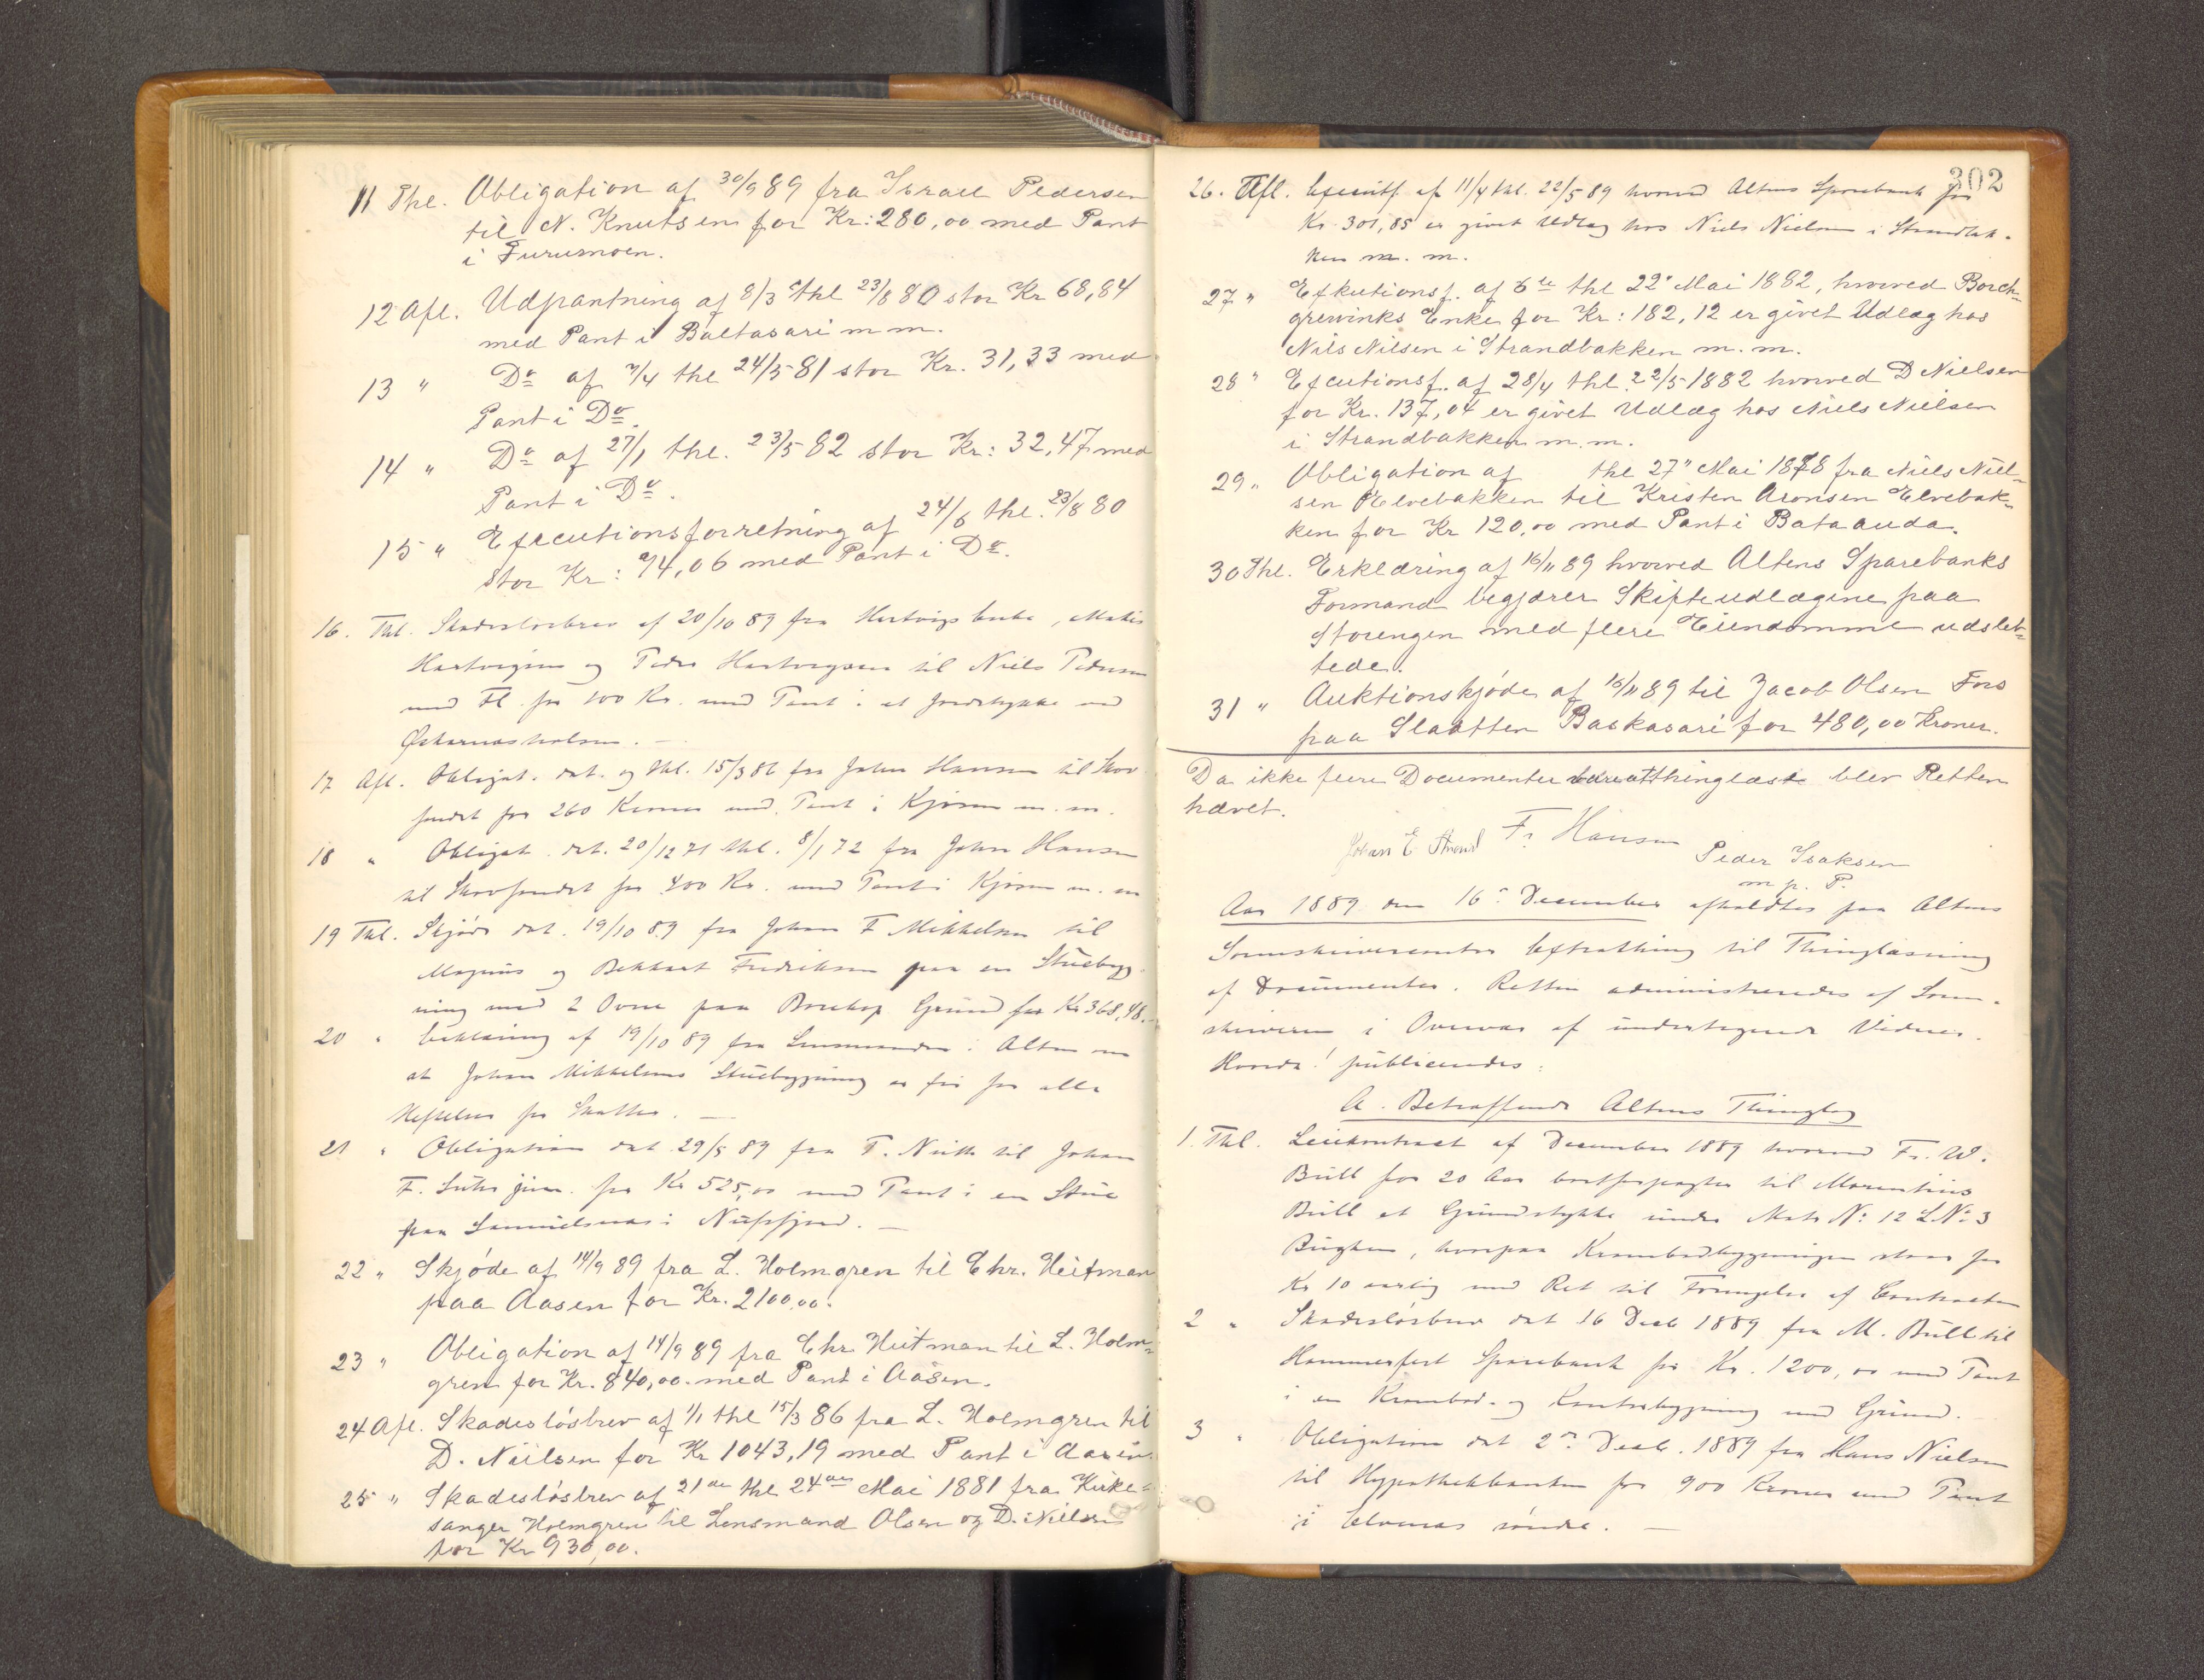 11 Thl. Obligation af 30/9 89 fra Israel Pedersen
til N. Knutsen for Kr: 280,00 med Pant
i Furumoen.
12 Afl. Udpantning af 8/3 thl 23/8 80 stor Kr 68,84
med Pant i Baltasari m m.
13 " Do af 7/4 thl 24/5 81 stor Kr. 31,33 med
Pant i Do.
14 " Do af 27/1 thl. 23/5 82 stor Kr: 32,47 med
Pant i Do.
15 " Executionsforretning af 24/6 thl. 23/8 80
stor Kr: 74,06 med Pant i Do.
16. Thl. Skadesløsbrev af 20/10 89 fra Hartvigs Enke, Mathis
Hartvigsen og Peder Hartvigsen til Niels Pedersen
med Fl. for 100 Kr. med Pant i et Jordstykke ved
17 Afl. Obligat. dat. og thl. 15/3 86 fra John Hansen til Skov-
fondet for 260 Kroner med Pant i Kjørsen m. m.
18 " Obligat. dat. 20/12 71 thl. 8/1 72 fra John Hansen
til Skovfondet for 400 Kr. med Pant i Kjørsen m. m
19 Thl. Skjøde dat. 19/10 89 fra Johan F Mikkelsen til
Magnus og Fredriksen paa en Stuebyg-
ning med 2 Ovne paa Bosekop Grund for Kr 368,48.
20 " Erklæring af 19/10 89 fra Lensmanden i Alten om
at Johan Mikkelsens Stuebygning er fri for alle
Heftelser for Skatter. —
21 " Obligation dat 29/8 89 fra T. Nutti til Johan
F. jun. for Kr 525,00 med Pant i en Stue
paa Samuelsnæs i
22 " Skjøde af 14/9 89 fra L. Holmgren til Chr. Heitman
paa Aasen for Kr. 2100,00.
23 " Obligation af 14/9 89 fra Chr. Heitman til L. Holm-
gren for Kr. 840,00. med Pant i Aasen.
24 Afl. Skadesløsbrev af 1/1 thl 15/3 86 fra L. Holmgren til
D. Nielsen for Kr 1043,19 med Pant i Aasen.
25 " Skadesløsbrev af 21de thl 24de Mai 1881 fra Kirke-
sanger Holmgren til Lensmand Olsen og D. Nielsen
for Kr 930,00.
302
26. Afl. Executf. af 11/4 thl. 22/5 89 hvorved Altens Sparebank for
Kr. 301,85 er givet Udlæg hos Niels Nielsen i Strandbak-
ken m. m.
27 " Exkutionsf. af 6te thl 22" Mai 1882, hvorved Borch-
grewinks Enke for Kr: 182,12 er givet Udlæg hos
Nils Nilsen i Strandbakken m. m.
28 " Excutionsf. af 28/4 thl. 22/5 1882 hvorved D Nielsen
for Kr. 137,04 er givet Udlæg hos Niels Nielsen
i Strandbakken m. m.
29 " Obligation af thl 27" Mai 1878 fra Niels Niel-
sen Elvebakken til Kristen Aronsen Elvebak-
ken for Kr 120,00 med Pant i Bataauda.
30 Thl. Erklæring af 16/11 89 hvorved Altens Sparebanks
Formand begjærer Skifteudlægene paa
Storengen med flere Eiendomme udslet-
tede.
31 " Auktionskjøde af 16/11 89 til Jacob Olsen Fors
paa Slaatten Baskasari for 480,00 Kroner.
Da ikke flere Documenter thinglæste blev Retten
hævet.
Johan E Strand Fr. Hansen Peder Isaksen
m p. P.
Aar 1889 den 16" December afholdtes paa Altens
Sorenskriverembede Extrathing til Thinglæsning
af Documenter. Retten administreredes af Soren-
skriveren i Overvær af undertegnede Vidner.
Hvorda! publiceredes:
A. Betræffende Altens Thinglag
1. Thl. Leiekontract af December 1889 hvorved Fr. W.
Bull for 20 Aar bortforpagter til Marentius
Bull et Grundstykke under Matr No: 12 LNo 3
Bugten, hvorpaa Krambodbygningen staar for
Kr 10 aarlig med Ret til Fornyelse af Contracten
2 " Skadesløsbrev dat 16 Decb 1889 fra M. Bull til
Hammerfest Sparebank for Kr. 1200,00 med Pant
i en Krambod- og Kontorbygning med Grund.
3 " Obligation dat 2den Decb. 1889 fra Hans Nielsen
til Hypothekbanken for 900 Kroner med Pant
i Elvenæs søndre. —